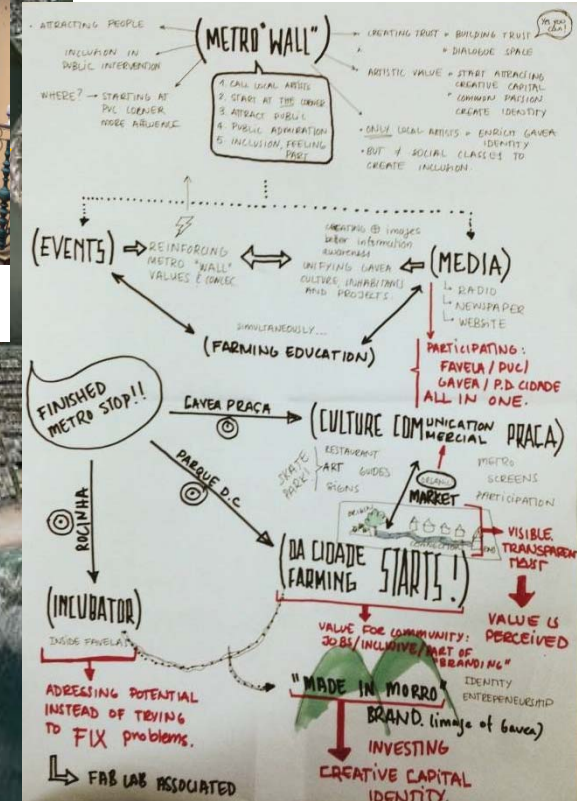 · ATTRACTING PEOPLE
INCLUSION IN
PUBLIC INTERVENTION
WHERE? → STARTING AT
PUC CORNER
MORE AFLUENCE
(METRO "WALL")
1. CALL LOCAL ARTISTS
2. START AT THE CORNER
3. ATTRACT PUBLIC
4. PUBLIC ADMIRATION
5. INCLUSION, FEELING
PART
Yes you
can!
CREATING TRUST = BUILDING TRUST
DIALOGUE SPACE
ARTISTIC VALUE = START ATTRACTING
CREATIVE CAPITAL
COMMON PASSION
CREATE IDENTITY
· ONLY LOCAL ARTISTS = ENRICH GAVEA
IDENTITY
· BUT ≠ SOCIAL CLASSES TO
CREATE INCLUSION.
(EVENTS)
REINFORCING
METRO "WALL"
VALUES & COLLEC.
CREATING ⊕ images
better information
awareness
UNIFYING GAVEA
CULTURE, INHABITANTS
AND PROJECTS
(MEDIA)
RADIO
NEWSPAPER
WEBSITE
SIMULTANEOUSLY...
(FARMING EDUCATION)
PARTICIPATING:
FAVELA / PUC /
GAVEA / P.D. CIDADE
ALL IN ONE.
FINISHED
METRO STOP!!
GAVEA PRAÇA
(CULTURE COMUNICATION
MERCIAL PRAÇA)
SKATE
PARK!
RESTAURANT
ART GUIDES
SIGNS
ORGANIC
MARKET
METRO
SCREENS
PARTICIPATION
PARQUE D.C
ROCINHA
VISIBLE.
TRANSPARENT
TRUST
VALUE IS
PERCEIVED
(DA CIDADE
FARMING STARTS!)
(INCUBATOR)
INSIDE FAVELA
VALUE FOR COMMUNITY:
JOBS/INCLUSIVE/PART OF
"BRANDING"
ADRESSING POTENTIAL
INSTEAD OF TRYING
TO FIX problems.
"MADE IN MORRO"
BRAND. (image of Gavea)
IDENTITY
ENTREPENEURSHIP
INVESTING
CREATIVE CAPITAL
IDENTITY.
FAB LAB ASSOCIATED